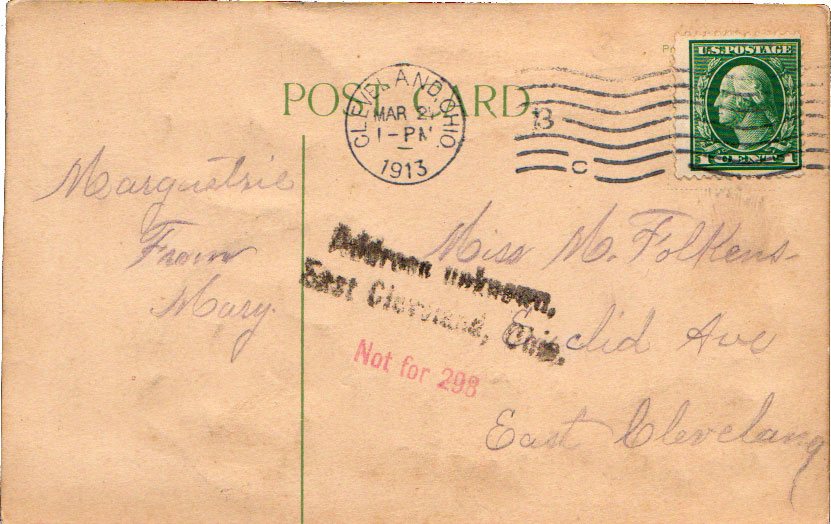 POST CARD
CLEVELAND, OHIO
MAR 2
1-PM
1913
B
C
U.S. POSTAGE
1 CENT 1
From
Mary.
Miss M. Folkens-
Euclid Ave
East Cleveland
Address unknown,
East Cleveland, Ohio.
Not for 298